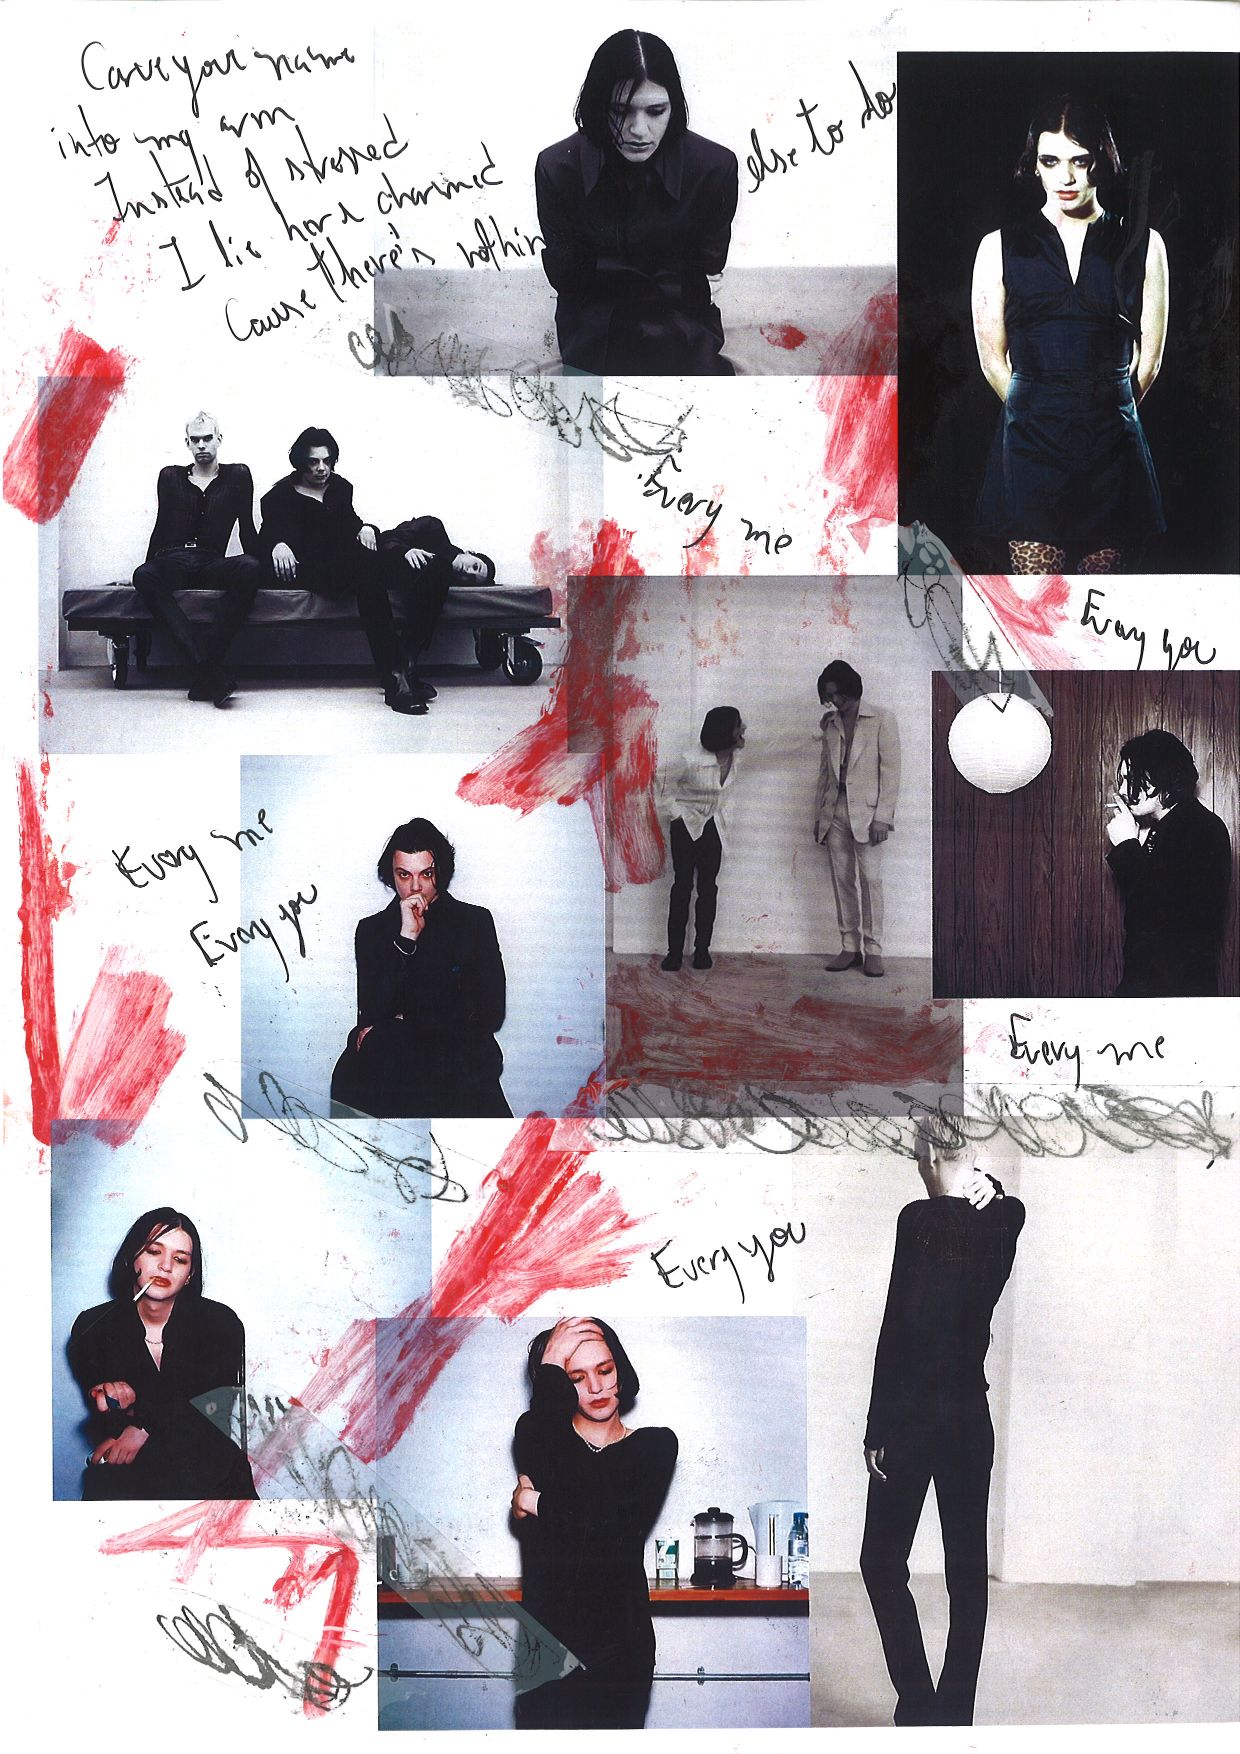 Carve your name
into my arm
Instead of stressed
I lie here charmed
Cause there's nothin
else to do
Every me
Every you
Every me
Every you
Every me
Every you